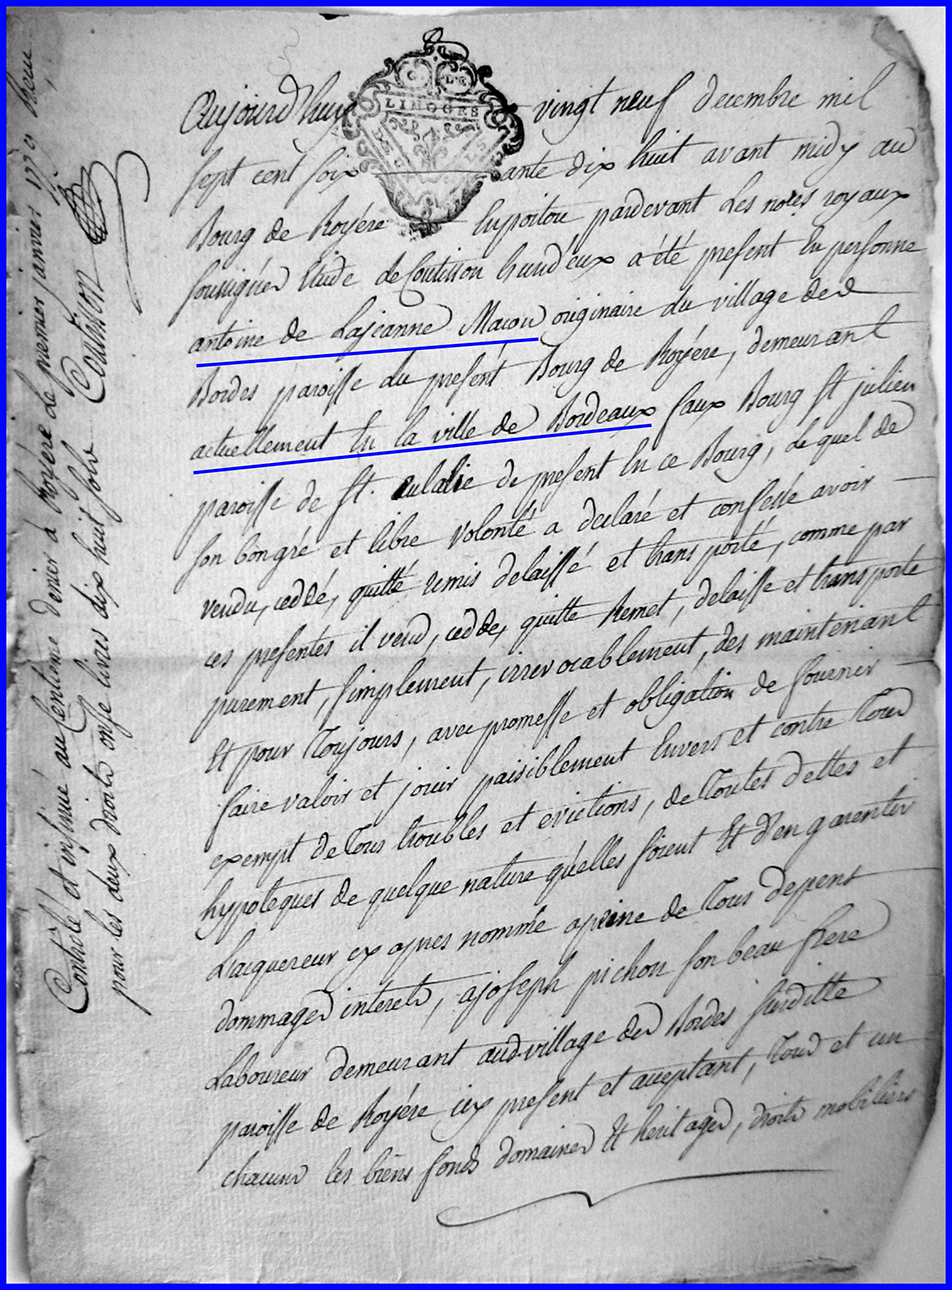 Aujourd'huy vingt neuf decembre mil
LIMOGES
sept cent soixante dix huit avant midy au
Bourg de Royére En poitou pardevant Les no.res royaux
soussignés Etude de Coutisson a été present En personne
antoine de Lajeanne Macon originaire du village des
Bordes paroisse du present Bourg de Royére, demeurant
actuellement En la ville de Bordeaux faux Bourg st julien
paroisse de st. eulalie de present En ce Bourg, lequel de
son bongré et libre volonté a declaré et confessé avoir
vendu, ceddé, quitté remis delaissé et transporté, comme par
ces presentes il vend, cedde, quitte remet, delaisse et transporte
purement, simplement, irrevocablement, des maintenant
Et pour toujours, avec promesse et obligation de fournir
faire valoir et jouir paisiblement Envers et contre tous
exempt de tous troubles et evictions, de toutes dettes et
hypoteques de quelque nature qu'elles soient Et d'en garentir
L'acquereur cy apres nommé apeine de tous depent
dommages interets, a joseph pichon son beau frere
Laboureur demeurant aud. village des Bordes susditte
paroisse de Royére icy present et aceptant, tous et un
chacuns les biens fonds domaines Et heritages, droits mobiliers
Contrôlé et insinué au Centieme denier à Royere le premier janvier 1779 Reçu
pour les deux droits onze livres dix huit sols Coutisson